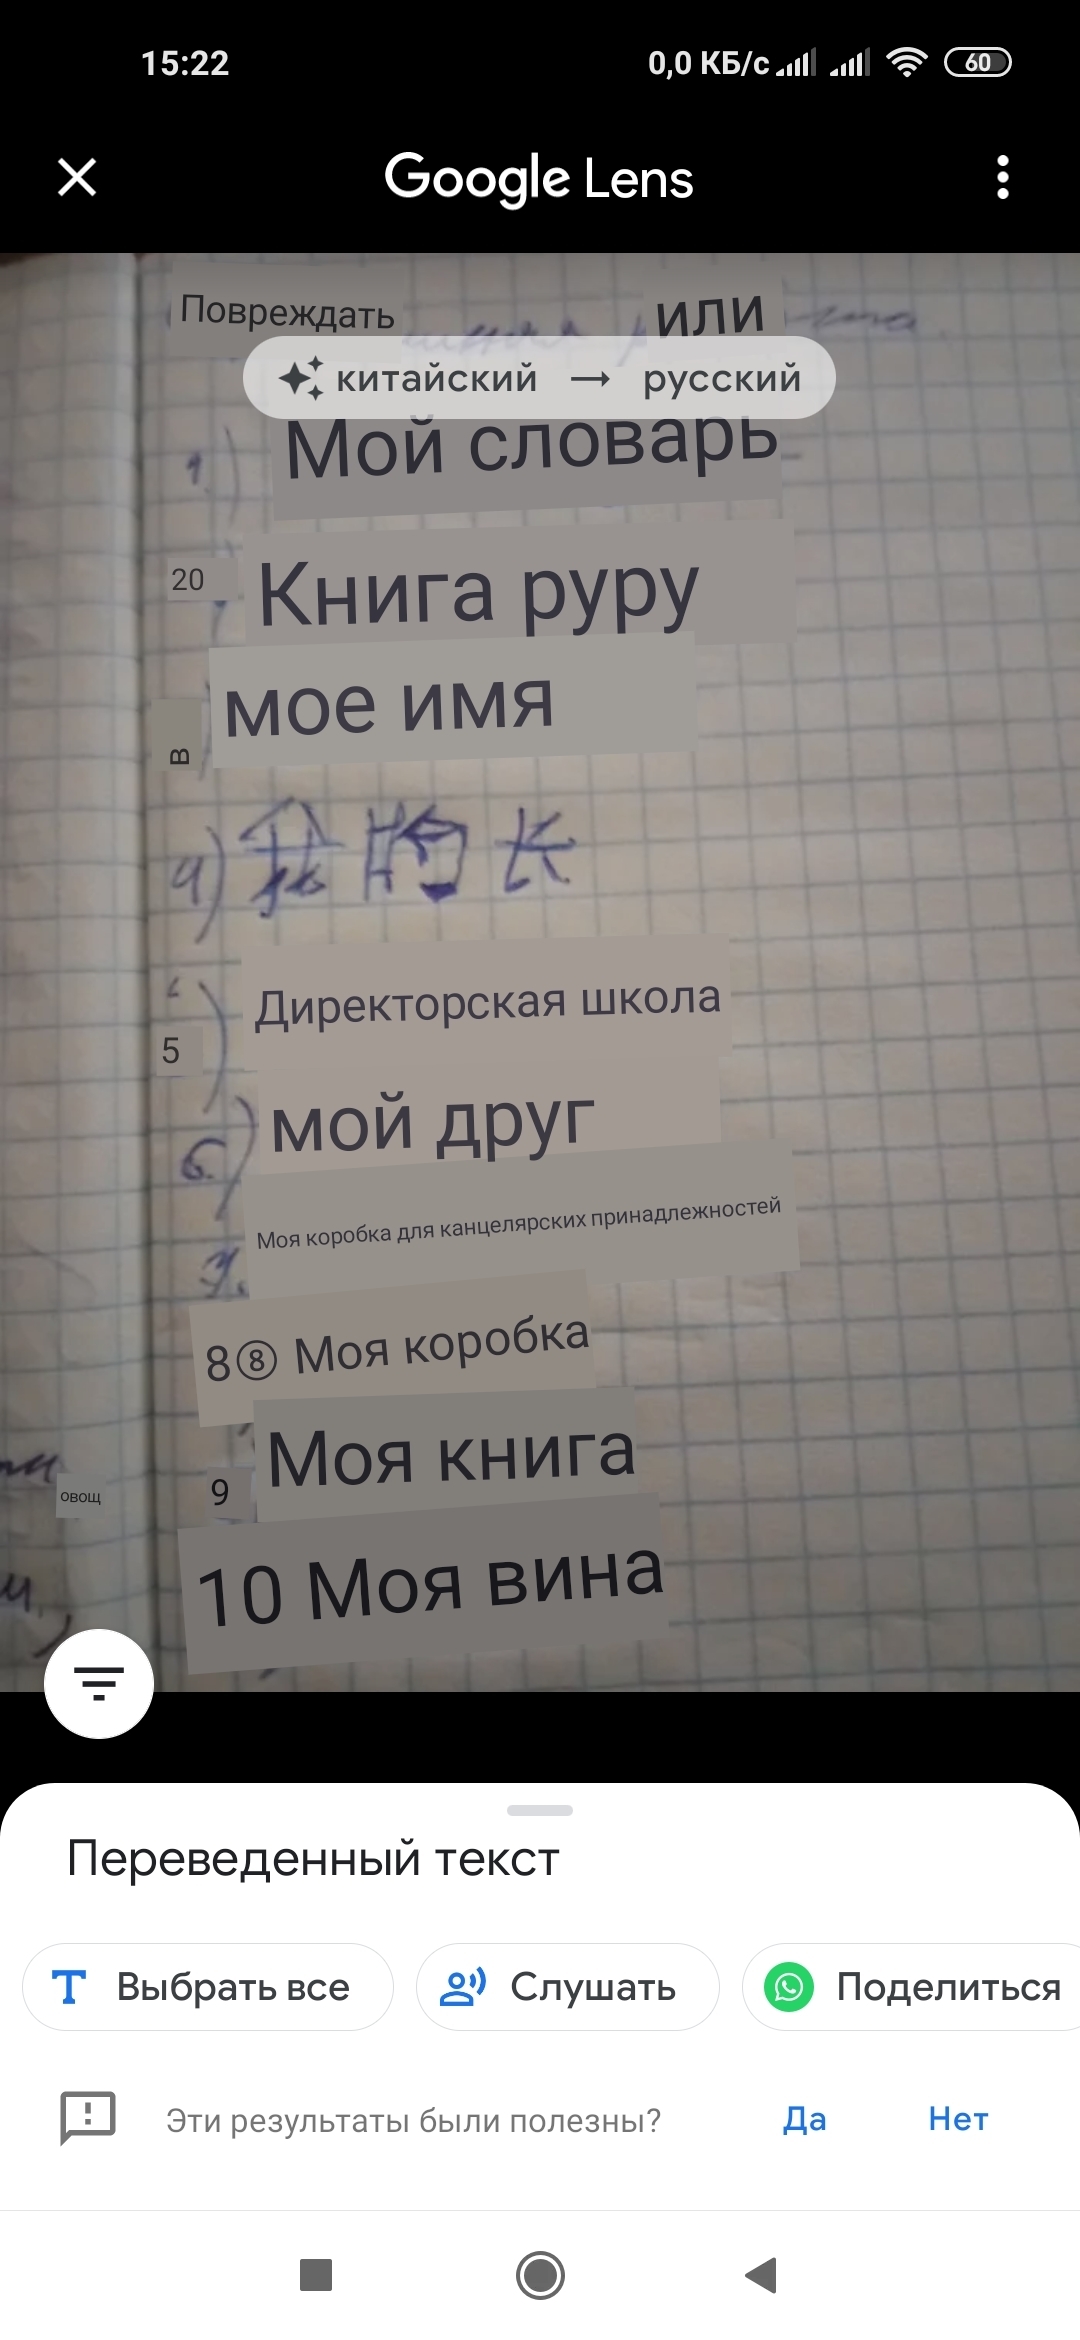 15:22 0,0 КБ/с 60
Google Lens
Повреждать или
китайский → русский
1) Мой словарь
20 Книга руру
в мое имя
4) 的 长
5 Директорская школа
6) мой друг
7. Моя коробка для канцелярских принадлежностей
8⑧ Моя коробка
9 Моя книга
овощ
10 Моя вина
Переведенный текст
Выбрать все Слушать Поделиться
Эти результаты были полезны? Да Нет